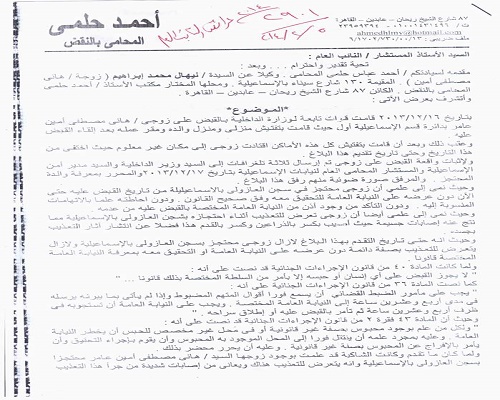 أحمد حلمى
المحامى بالنقض
٨٧ شارع الشيخ ريحان – عابدين – القاهرة
ahmedhlmy@hotmail.com
السيد الأستاذ المستشار / النائب العام :
تحية تقدير واحترام ... وبعد :
مقدمه لسيادتكم / أحمد عباس حلمى المحامى - وكيلا عن السيدة / نيهال محمد إبراهيم ( زوجة / هانى
مصطفى أمين ) . المقيمة ١٣٠ شارع سيناء بالإسماعيلية . ومحلها المختار مكتب الأستاذ / أحمد حلمى
المحامى بالنقض . الكائن ٨٧ شارع الشيخ ريحان – عابدين – القاهرة .
وأتشرف بعرض الآتى :
*الموضوع*
بتاريخ ٢٠١٣/١٢/١٦ قامت قوات تابعة لوزارة الداخلية بالقبض على زوجى / هانى مصطفى أمين
عامر بدائرة قسم الإسماعيلية أول حيث قامت بتفتيش منزلى ومنزل والده ومقر عمله بعد إلقاء القبض
عليه .
وعقب ذلك وبعد أن قامت بتفتيش كل هذه الأماكن اقتادت زوجى إلى مكان غير معلوم حيث اختفى من
هذا التاريخ وحتى تاريخ تقديم هذا البلاغ .
ولإثبات واقعة القبض على زوجى تم إرسال ثلاثة تلغرافات إلى السيد وزير الداخلية والسيد مدير أمن
الإسماعيلية والسيد المستشار المحامى العام لنيابات الإسماعيلية بتاريخ ٢٠١٣/١٢/١٧ والمحرر بمعرفة والدة
المحتجز . والمرفق صورة ضوئية منهم رفق هذا البلاغ .
وحيث نمى إلى علمى أن زوجى محتجز في سجن العازولى بالإسماعيلية من تاريخ القبض عليه حتى
الآن دون عرضه على النيابة العامة للتحقيق معه وفق صحيح القانون . ودون إحاطته علما بالاتهامات
المنسوبة إليه . ودون التأكد من وجود إذن من النيابة العامة المختصة بالقبض عليه من عدمه .
وحيث نمى إلى علمى أيضا أن زوجى تعرض للتعذيب أثناء احتجازه بسجن العازولى بالإسماعيلية مما
نتج عنه إصابات جسيمة حيث أصيب بكسر بالذراعين وكسر بالقدم هذا فضلا عن انتشار آثار التعذيب
بجسده .
وحيث أنه حتى تاريخ التقدم بهذا البلاغ لازال زوجى محتجز بسجن العازولى بالإسماعيلية ولازال
يتعرض للتعذيب بصفة دائمة دون عرضه على النيابة العامة أو التحقيق معه بمعرفة النيابة العامة
المختصة قانونا .
ولما كانت المادة ٤٠ من قانون الإجراءات الجنائية قد نصت على أنه :
" لا يجوز القبض على أي إنسان أو حبسه إلا بأمر من السلطة المختصة بذلك قانونا ... "
كما نصت المادة ٣٦ من قانون الإجراءات الجنائية على أنه :
" يجب على مأمور الضبط القضائى أن يسمع فورا أقوال المتهم المضبوط وإذا لم يأتى بما يبرئه يرسله
فى مدى أربع وعشرين ساعة إلى النيابة العامة المختصة . ويجب على النيابة العامة أن تستجوبه في
ظرف أربع وعشرين ساعة ثم تأمر بالقبض عليه أو إطلاق سراحه . "
وحيث أن المادة ٤٣ فقرة ٢ من قانون الإجراءات الجنائية قد نصت على أنه :
" ولكل من علم بوجود محبوس بصفة غير قانونية أو فى محل غير مخصص للحبس أن يخطر النيابة
العامة . وعليه بمجرد علمه أن ينتقل فورا إلى المحل الموجود به المحبوس وأن يقوم بإجراء التحقيق وأن
يأمر بالإفراج عن المحبوس بصفة غير قانونية . وعليه أن يحرر محضر بذلك . "
ولما كان ما تقدم وكانت الشاكية قد علمت بوجود زوجها السيد / هانى مصطفى أمين عامر محتجزا
بسجن العازولى بالإسماعيلية وانه يتعرض للتعذيب هناك ويعانى من إصابات شديدة من جراء هذا التعذيب